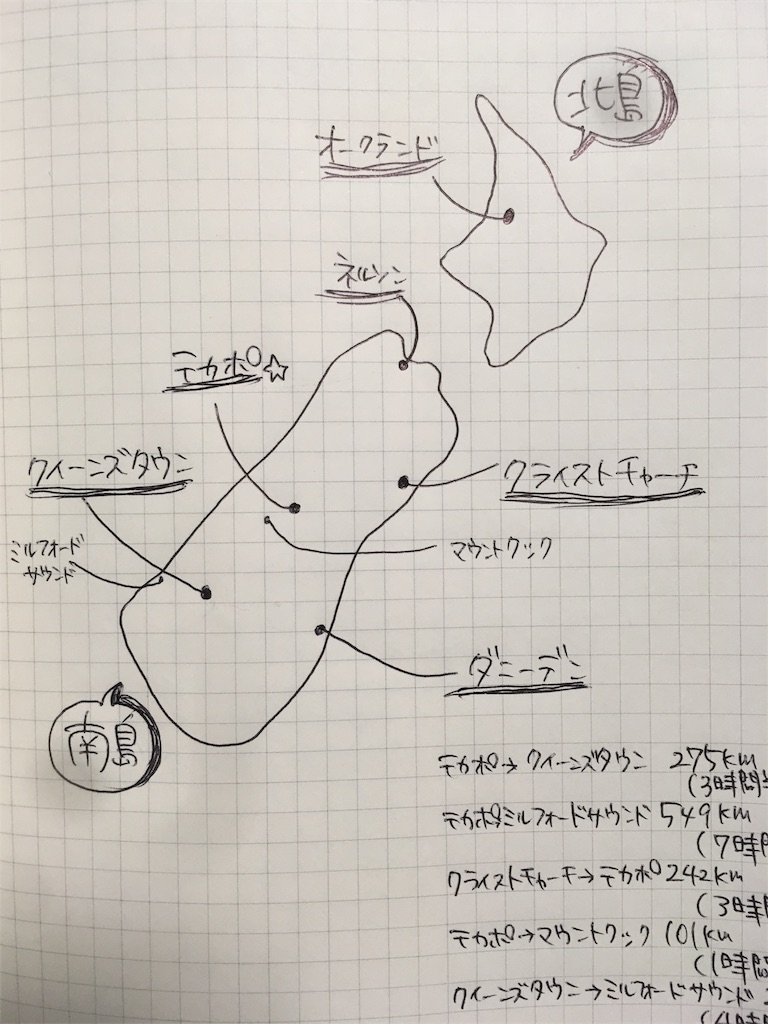 北島
オークランド
ネルソン
テカポ☆
クイーンズタウン
クライストチャーチ
ミルフォード
サウンド
マウントクック
ダニーデン
南島
テカポ→クイーンズタウン 275km
(3時間半
テカポ→ミルフォードサウンド 549km
(7時間
クライストチャーチ→テカポ 242km
(3時間
テカポ→マウントクック 101km
(1時間
クイーンズタウン→ミルフォードサウンド
(4時間